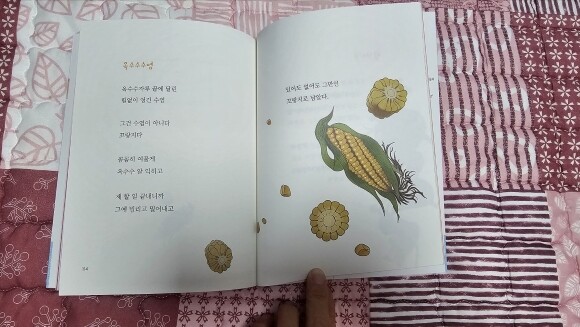 옥수수수염
옥수수가루 끝에 달린
힘없이 엉킨 수염
그건 수염이 아니다
꼬랑지다
꼼꼼히 여물게
옥수수 알 익히고
제 할 일 끝내니까
그에 말리고 떨어내고
있어도 없어도 그만인
꼬랑지로 남았다.
94